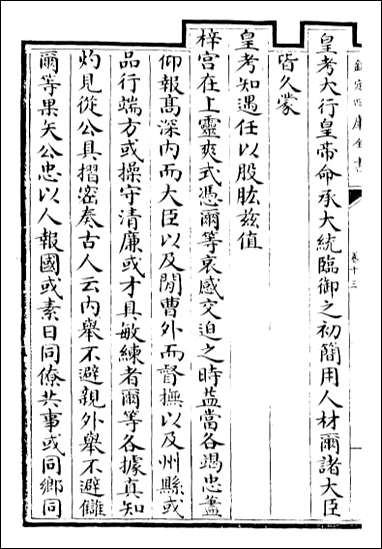 皇考大行皇帝命承大統臨御之初簡用人材爾諸大臣
皆久蒙
皇考知遇任以股肱兹值
梓宮在上靈爽式憑爾等哀感交迫之時益當各竭忠藎
仰報髙深内而大臣以及閒曹外而督撫以及州縣或
品行端方或操守清廉或才具敏練者爾等各據真知
灼見從公具摺宻奏古人云内舉不避親外舉不避讎
爾等果矢公忠以人報國或素日同僚共事或同鄉同
欽定四庫全書
卷十三